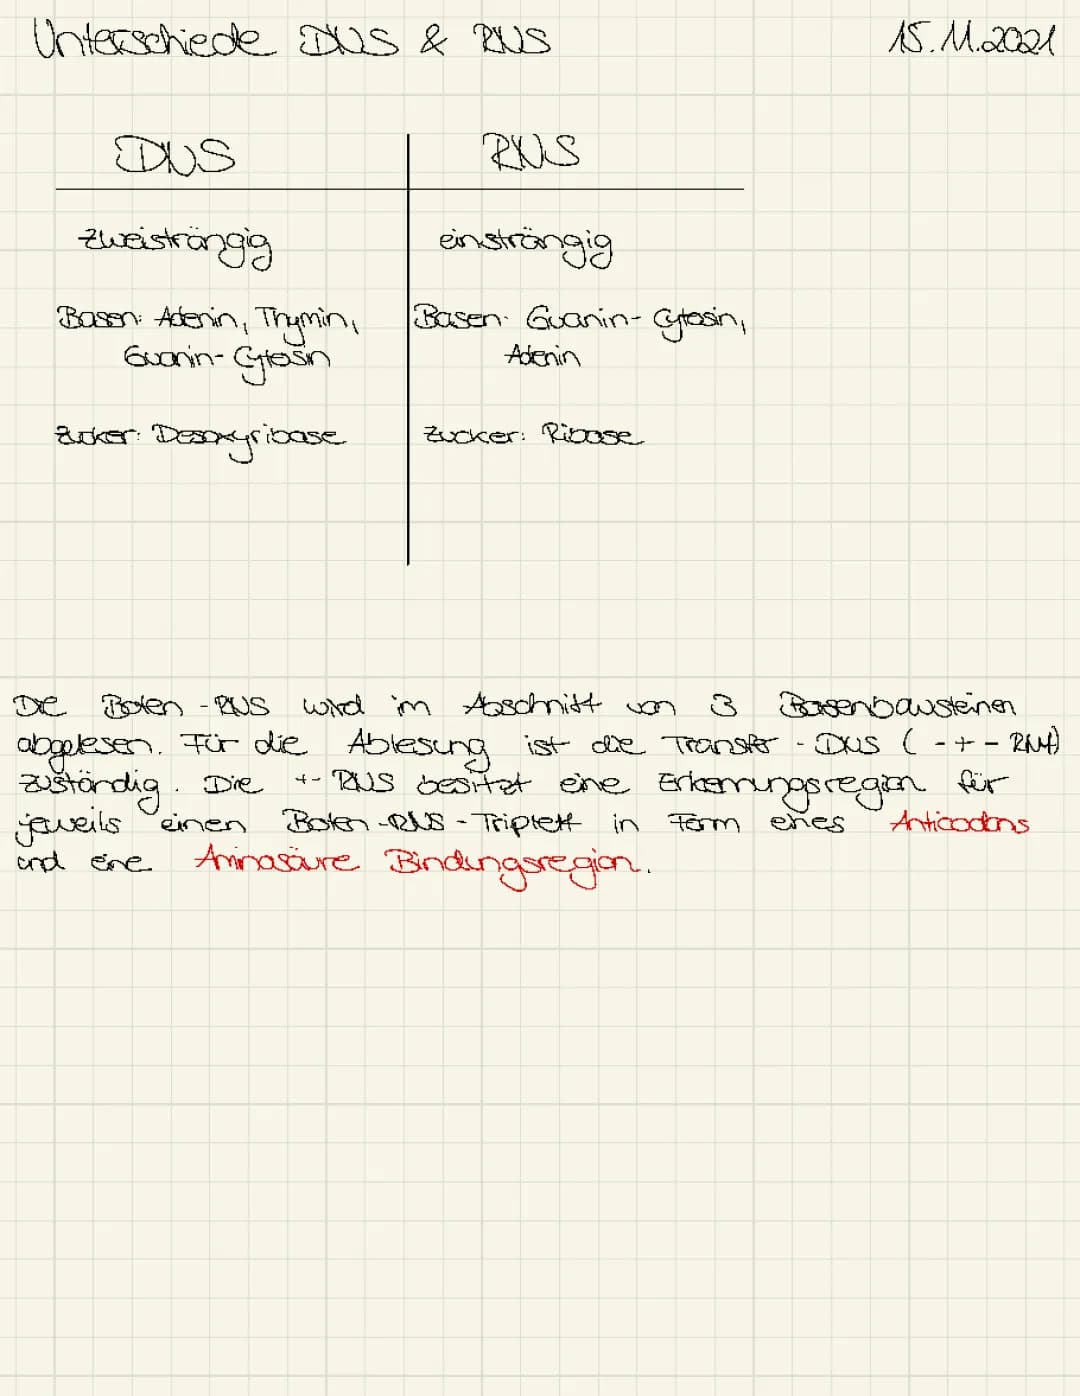 Unterschiede DNS & RNS 15.11.2021
DNS RNS
zweisträngig einsträngig
Basen: Adenin, Thymin, Basen: Guanin-Cytosin,
Guanin-Cytosin Adenin
Zucker: Desoxyribose Zucker: Ribose
Die Boten-RNS wird im Abschnitt von 3 Basenbausteinen
abgelesen. Für die Ablesung ist die Transfer-DNS (-t-RNA)
zuständig. Die t-RNS besitzt eine Erkennungsregion für
jeweils einen Boten-RNS-Triplett in Form eines Anticodons
und eine Aminosäure Bindungsregion.